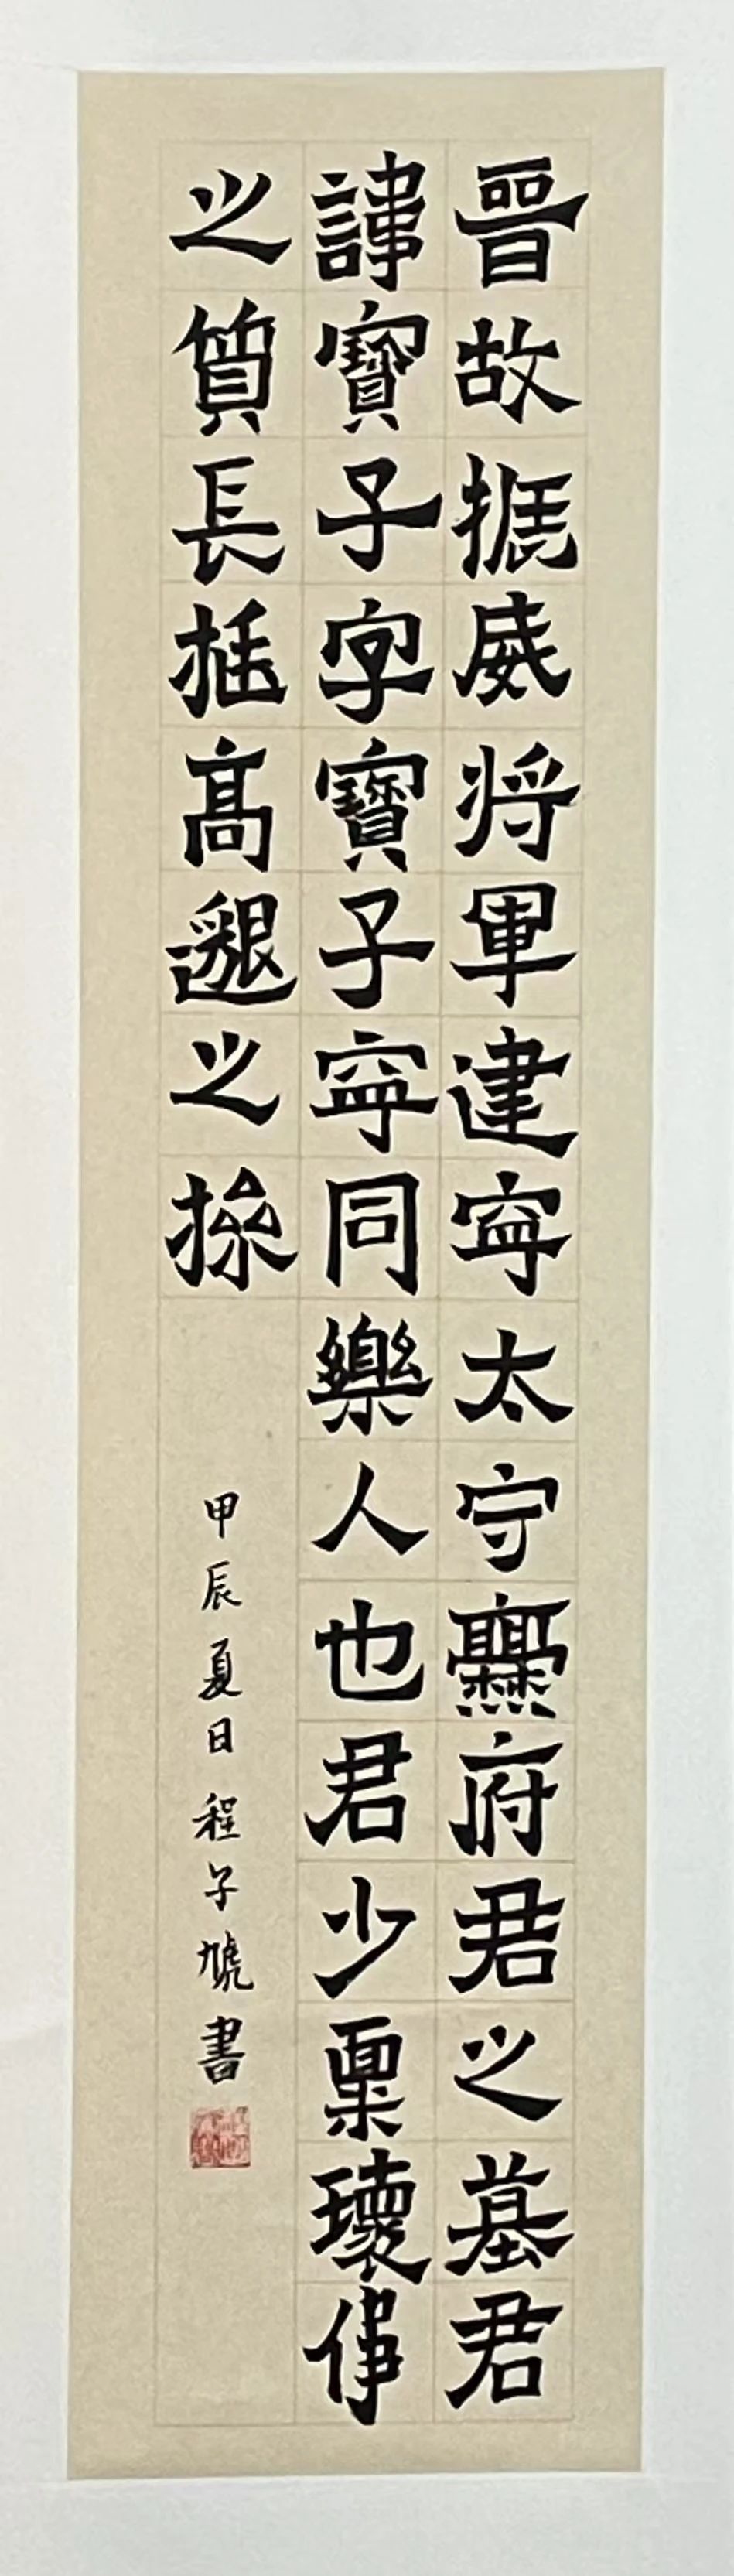 晉故振威将軍建寧太守爨府君之墓君
諱寶子字寶子寧同樂人也君少稟瓌偉
之質長挺高邈之操
甲辰夏日程子虓書